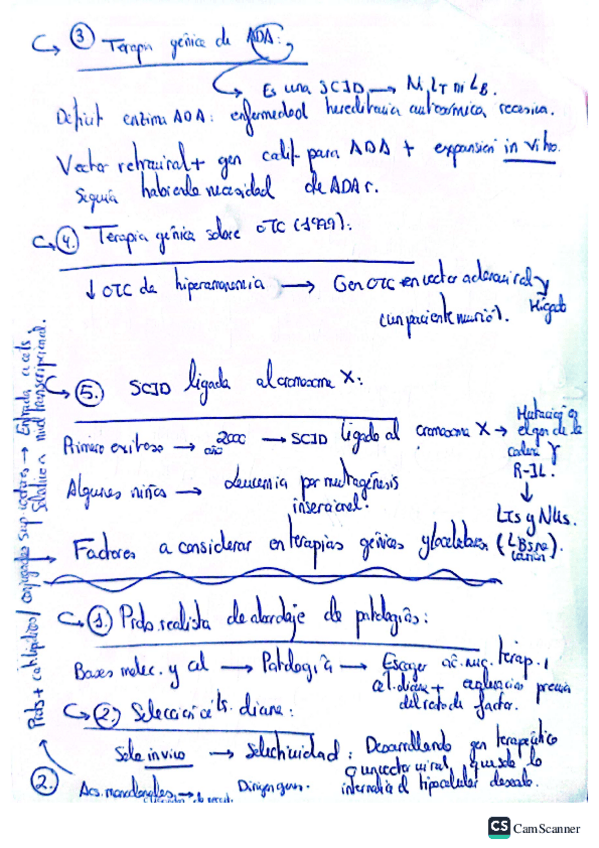 ③ Terapia génica de ADA:
Es una SCID → Ni LT ni LB.
Déficit enzima ADA: enfermedad hereditaria autosómica recesiva.
Vector retroviral + gen calif. para ADA + expansión in vitro.
Seguía habiendo necesidad de ADA r.
④ Terapia génica sobre OTC (1999):
↓ OTC da hiperamonemia → Gen OTC en vector adenoviral y
Hígado
(un paciente murió).
⑤. SCID ligada al cromosoma X:
Primero exitoso → año 2000 → SCID ligado al cromosoma X → Mutación en
el gen de la
cadena γ
R-IL.
↓
LTs y NKs.
(LBs no
Algunos niños → Leucemia por mutagénesis
insercional.
→ Factores a considerar en terapias génicas y celulares
①. Proto. realista de abordaje de patologías:
Bases molec. y cel → Patología → Escoger ác. nuc. terap. y
cel. diana + evaluación previa
del resto de factor.
②. Selección cels. diana:
Sole in vivo → Selectividad: Desarrollando gen terapéutico
o un vector viral que solo lo
internalice el tipo celular deseado.
②. Acs. monoclonales →
Prots + catilipídicos / conjugados sup vectores → Entrada a cels.
nivel transcripcional.
CS CamScanner